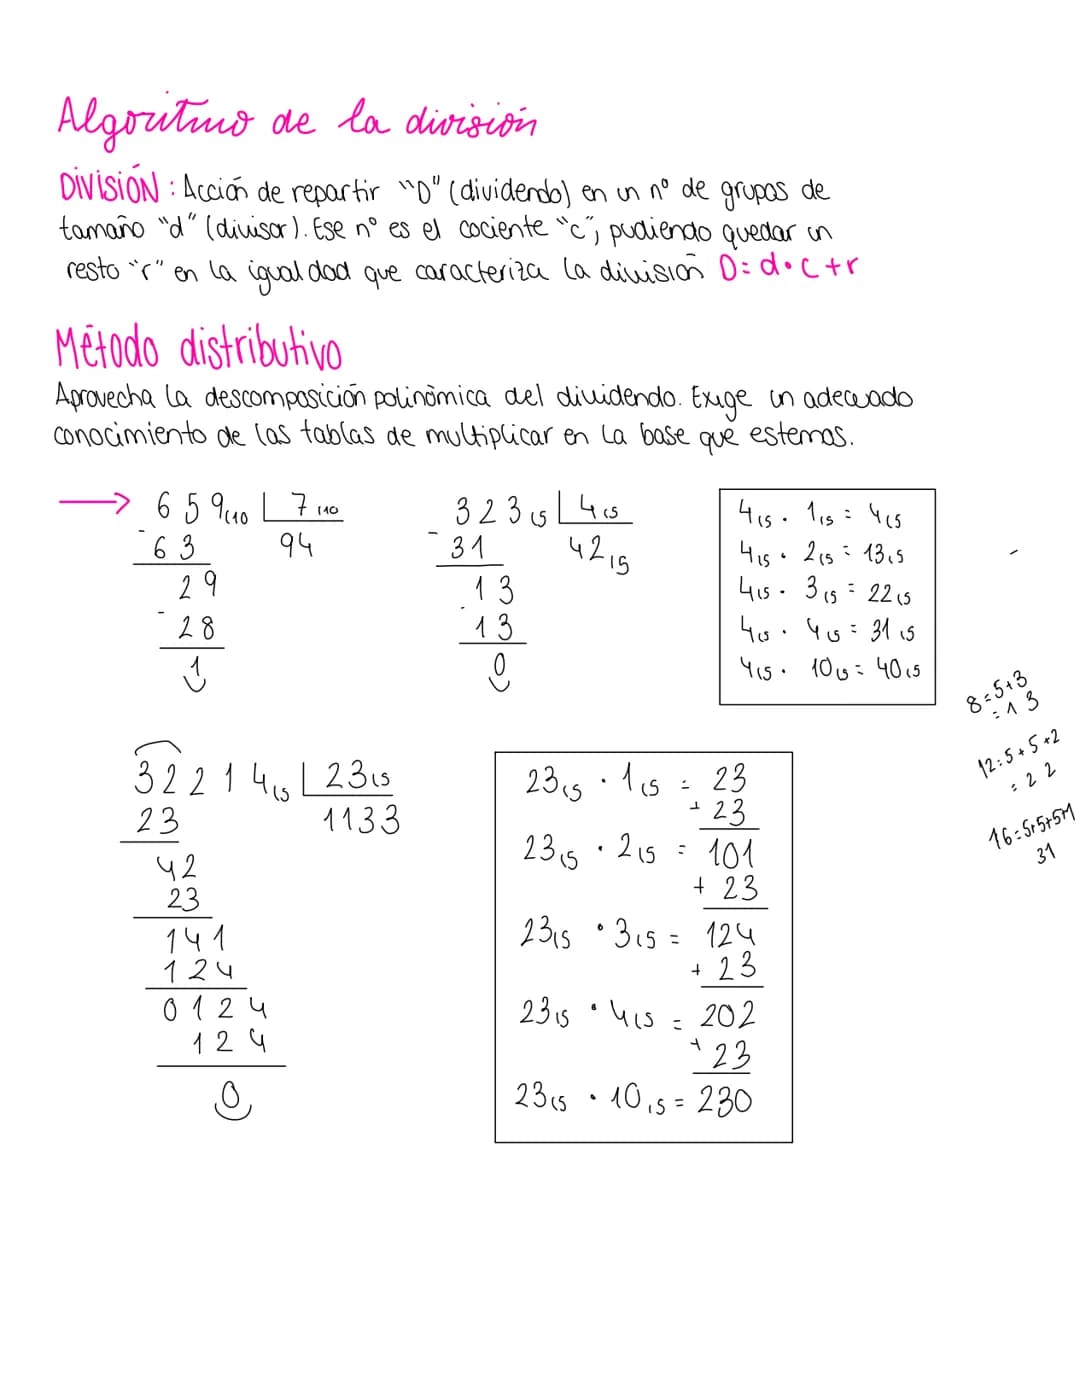 Algoritmo de la división
DIVISIÓN : Acción de repartir "D" (dividendo) en un nº de grupos de
tamaño "d" (divisor). Ese nº es el cociente "c", pudiendo quedar un
resto "r" en la igualdad que caracteriza la división D = d · c + r
Método distributivo
Aprovecha la descomposición polinómica del dividendo. Exige un adecuado
conocimiento de las tablas de multiplicar en la base que estemos.
→ 659(10 | 7(10
- 63 94
29
- 28
1
323(5 | 4(5
- 31 42(5
13
- 13
0
4(5 · 1(5 = 4(5
4(5 · 2(5 = 13(5
4(5 · 3(5 = 22(5
4(5 · 4(5 = 31(5
4(5 · 10(5 = 40(5
8 = 5+3
= 13
12 = 5+5+2
= 22
16 = 5+5+5+1
31
32214(5 | 23(5
23 1133
42
23
141
124
0124
124
0
23(5 · 1(5 = 23
+ 23
23(5 · 2(5 = 101
+ 23
23(5 · 3(5 = 124
+ 23
23(5 · 4(5 = 202
+ 23
23(5 · 10(5 = 230